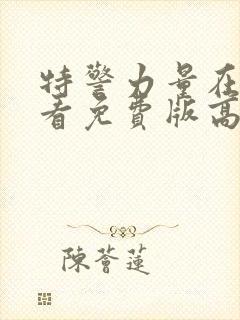 特警力量在
看免费版高
陳薈蓮